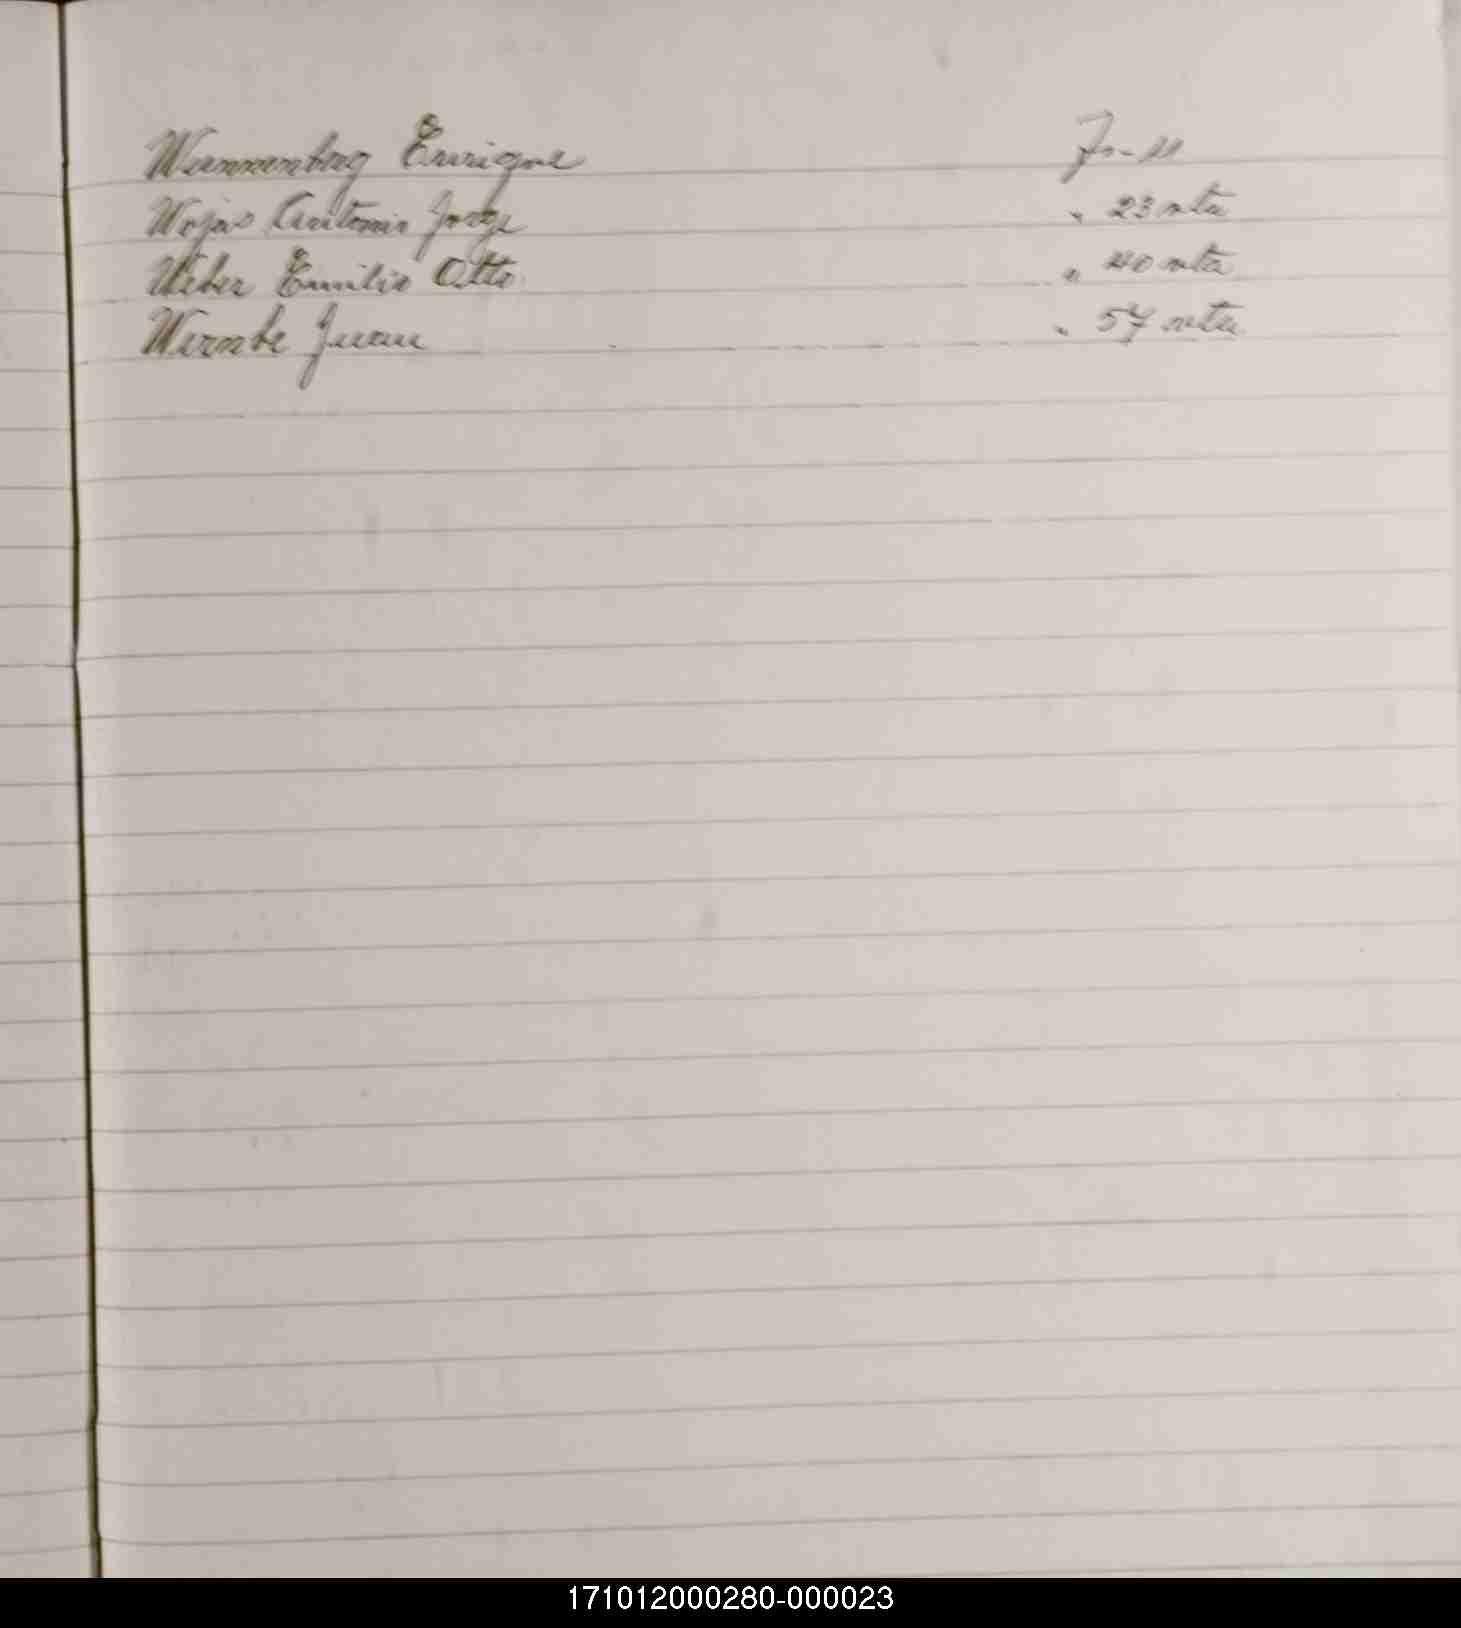 Wannenberg Enrique Fo-11
Wojas Antonio Jorge " 23 vta
Weber Emilio Otto " 40 vta
Wernbe Juan " 57 vta
171012000280-000023